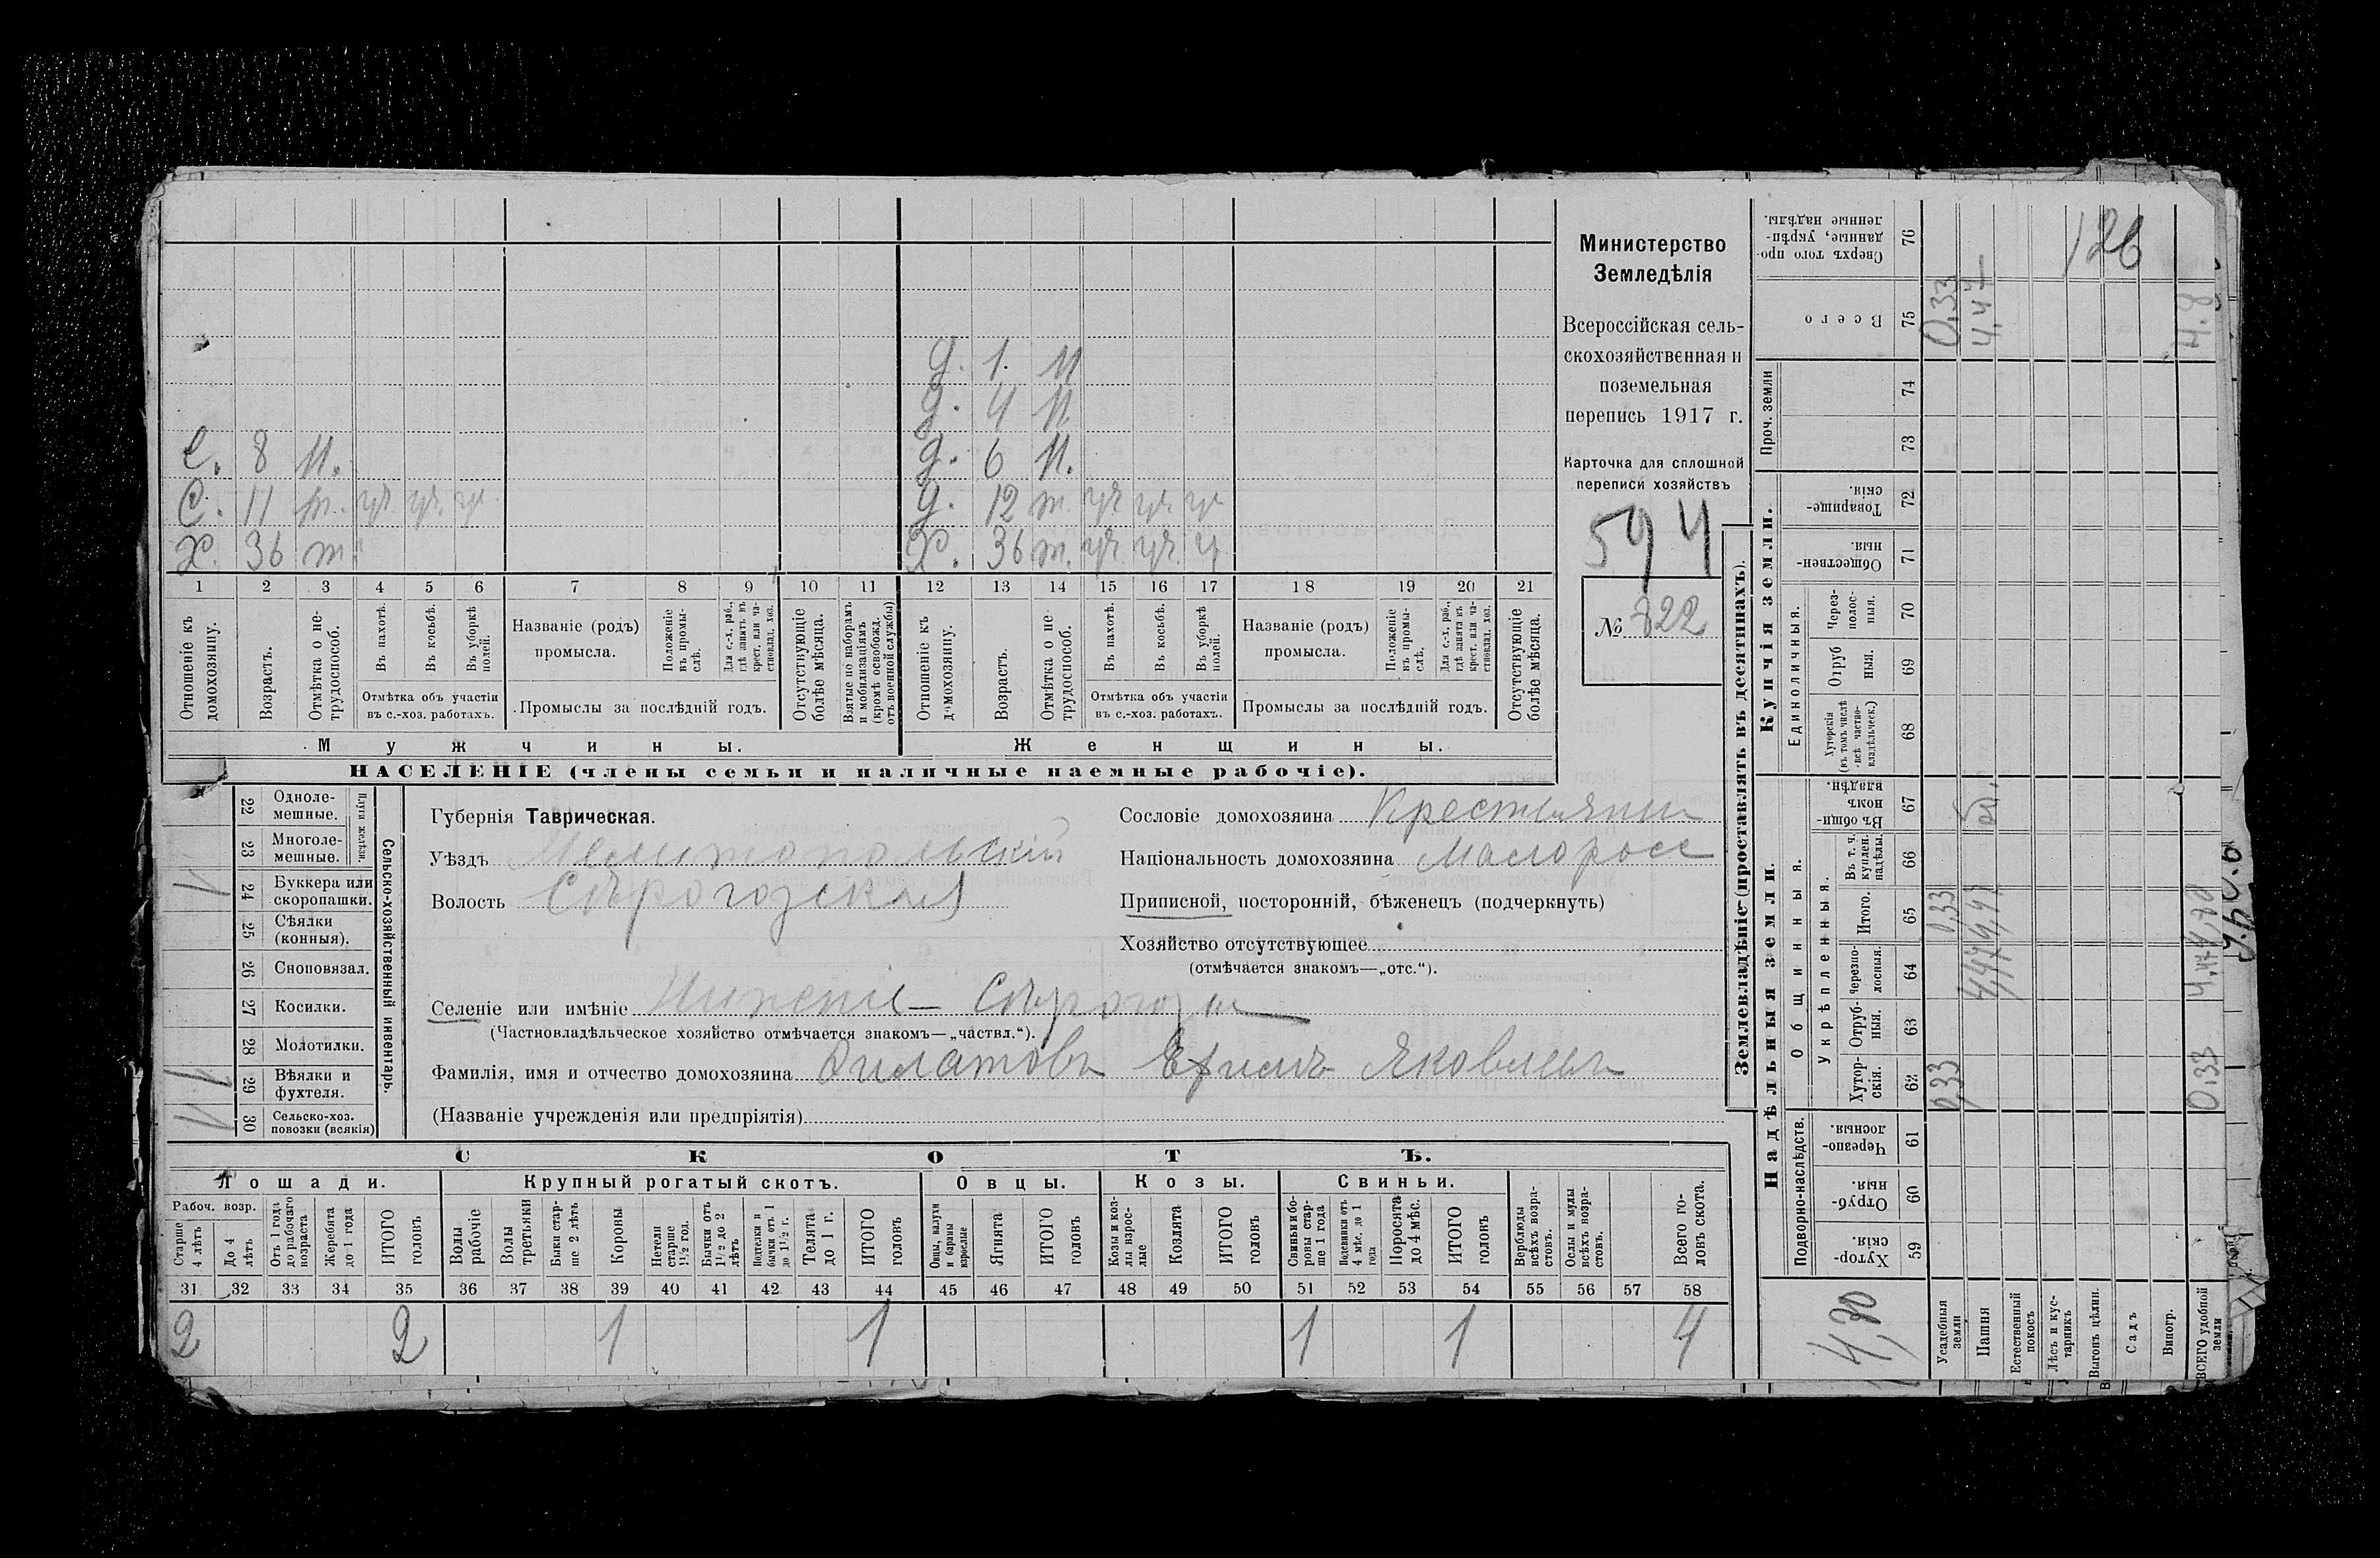 Д. 1. Н
Д. 4 Н.
С. 8 Н. Д. 6 Н.
С. 11 т. Д. 12 т.
Х. 36 т. Х. 36 т.
1 2 3 4 5 6 7 8 9 10 11 12 13 14 15 16 17 18 19 20 21
Отношеніе къ домохозяину.
Возрастъ.
Отмѣтка о нетрудоспособ.
Въ пахотѣ.
Въ косьбѣ.
Въ уборкѣ полей.
Отмѣтка объ участіи
въ с.-хоз. работахъ.
Названіе (родъ)
промысла.
Положеніе въ промыслѣ.
Для с.-х. раб., гдѣ занятъ въ крест. или частновлад. хоз.
Промыслы за послѣдній годъ.
Отсутствующіе болѣе мѣсяца.
Взятые по наборамъ и мобилизаціямъ (кромѣ освобожд. отъ военной службы)
Отношеніе къ домохозяину.
Возрастъ.
Отмѣтка о нетрудоспособ.
Въ пахотѣ.
Въ косьбѣ.
Въ уборкѣ полей.
Отмѣтка объ участіи
въ с.-хоз. работахъ.
Названіе (родъ)
промысла.
Положеніе въ промыслѣ.
Для с.-х. раб., гдѣ занята въ крест. или частновлад. хоз.
Промыслы за послѣдній годъ.
Отсутствующіе болѣе мѣсяца.
Мужчины.
Женщины.
НАСЕЛЕНІЕ (члены семьи и наличные наемные рабочіе).
Министерство
Земледѣлія
Всероссійская сель-
скохозяйственная и
поземельная
перепись 1917 г.
Карточка для сплошной
переписи хозяйствъ
594
№ 822
22 Одноле-
мешные.
23 Многоле-
мешные.
Плуги желѣзн.
24 Буккера или
скоропашки.
25 Сѣялки
(конныя).
26 Сноповязал.
27 Косилки.
28 Молотилки.
29 Вѣялки и
фухтеля.
30 Сельско-хоз.
повозки (всякія)
Сельско-хозяйственный инвентарь.
Губернія Таврическая.
Уѣздъ Мелитопольскій
Волость Сѣрогозская
Сословіе домохозяина Крестьянин
Національность домохозяина Малоросс
Приписной, посторонній, бѣженецъ (подчеркнуть)
Хозяйство отсутствующее
(отмѣчается знакомъ—„отс.“).
Селеніе или имѣніе Нижніе-Сѣрогозы
(Частновладѣльческое хозяйство отмѣчается знакомъ—„частвл.“).
Фамилія, имя и отчество домохозяина Филатовъ Ефимъ Яковлевъ
(Названіе учрежденія или предпріятія)
СКОТЪ.
Лошади. Крупный рогатый скотъ. Овцы. Козы. Свиньи.
Рабоч. возр.
Старше 4 лѣтъ
До 4 лѣтъ
Отъ 1 года до рабочаго возраста
Жеребята до 1 года
ИТОГО головъ
Волы рабочіе
Волы третьяки
Быки старше 2 лѣтъ
Коровы
Нетели старше 1½ год.
Бычки отъ 1½ до 2 лѣтъ
Подтелки и бычки отъ 1 до 1½ г.
Телята до 1 г.
ИТОГО головъ
Овцы, валухи и бараны взрослые
Ягнята
ИТОГО головъ
Козы и козлы взрослые
Козлята
ИТОГО головъ
Свиньи и боровы старше 1 года
Подсвинки отъ 4 мѣс. до 1 года
Поросята до 4 мѣс.
ИТОГО головъ
Верблюды всѣхъ возрастовъ.
Ослы и мулы всѣхъ возрастовъ.
Всего головъ скота.
31 32 33 34 35 36 37 38 39 40 41 42 43 44 45 46 47 48 49 50 51 52 53 54 55 56 57 58
2 2 1 1 1 1 4
Землевладѣніе (проставлять въ десятинахъ).
Надѣльныя земли.
Купчія земли.
Проч. земли
Подворно-наслѣдств.
Общинныя.
Укрѣпленныя.
Единоличныя.
Хуторскія. 59
Отрубныя. 60
Черезполосныя. 61
Хуторскія. 62
Отрубныя. 63
Черезполосныя. 64
Итого. 65
Въ т. ч. куплен. надѣлы. 66
Въ общинномъ владѣн. 67
Хуторскія (въ томъ числѣ всѣ частновладѣльческ.) 68
Отрубныя. 69
Черезполосныя. 70
Общественныя. 71
Товарищескія. 72
73
74
Всего 75
Сверхъ того проданные, укрѣпленные надѣлы. 76
4,80
Усадебныя земли 0,33 0,33 0,33
Пашня 4,47 4,47 4,47
Естественный покосъ
Лѣсъ и кустарникъ
Выгонъ цѣлин.
Садъ
Виногр.
ВСЕГО удобной земли 0,33 4,47 4,80 4.8
126